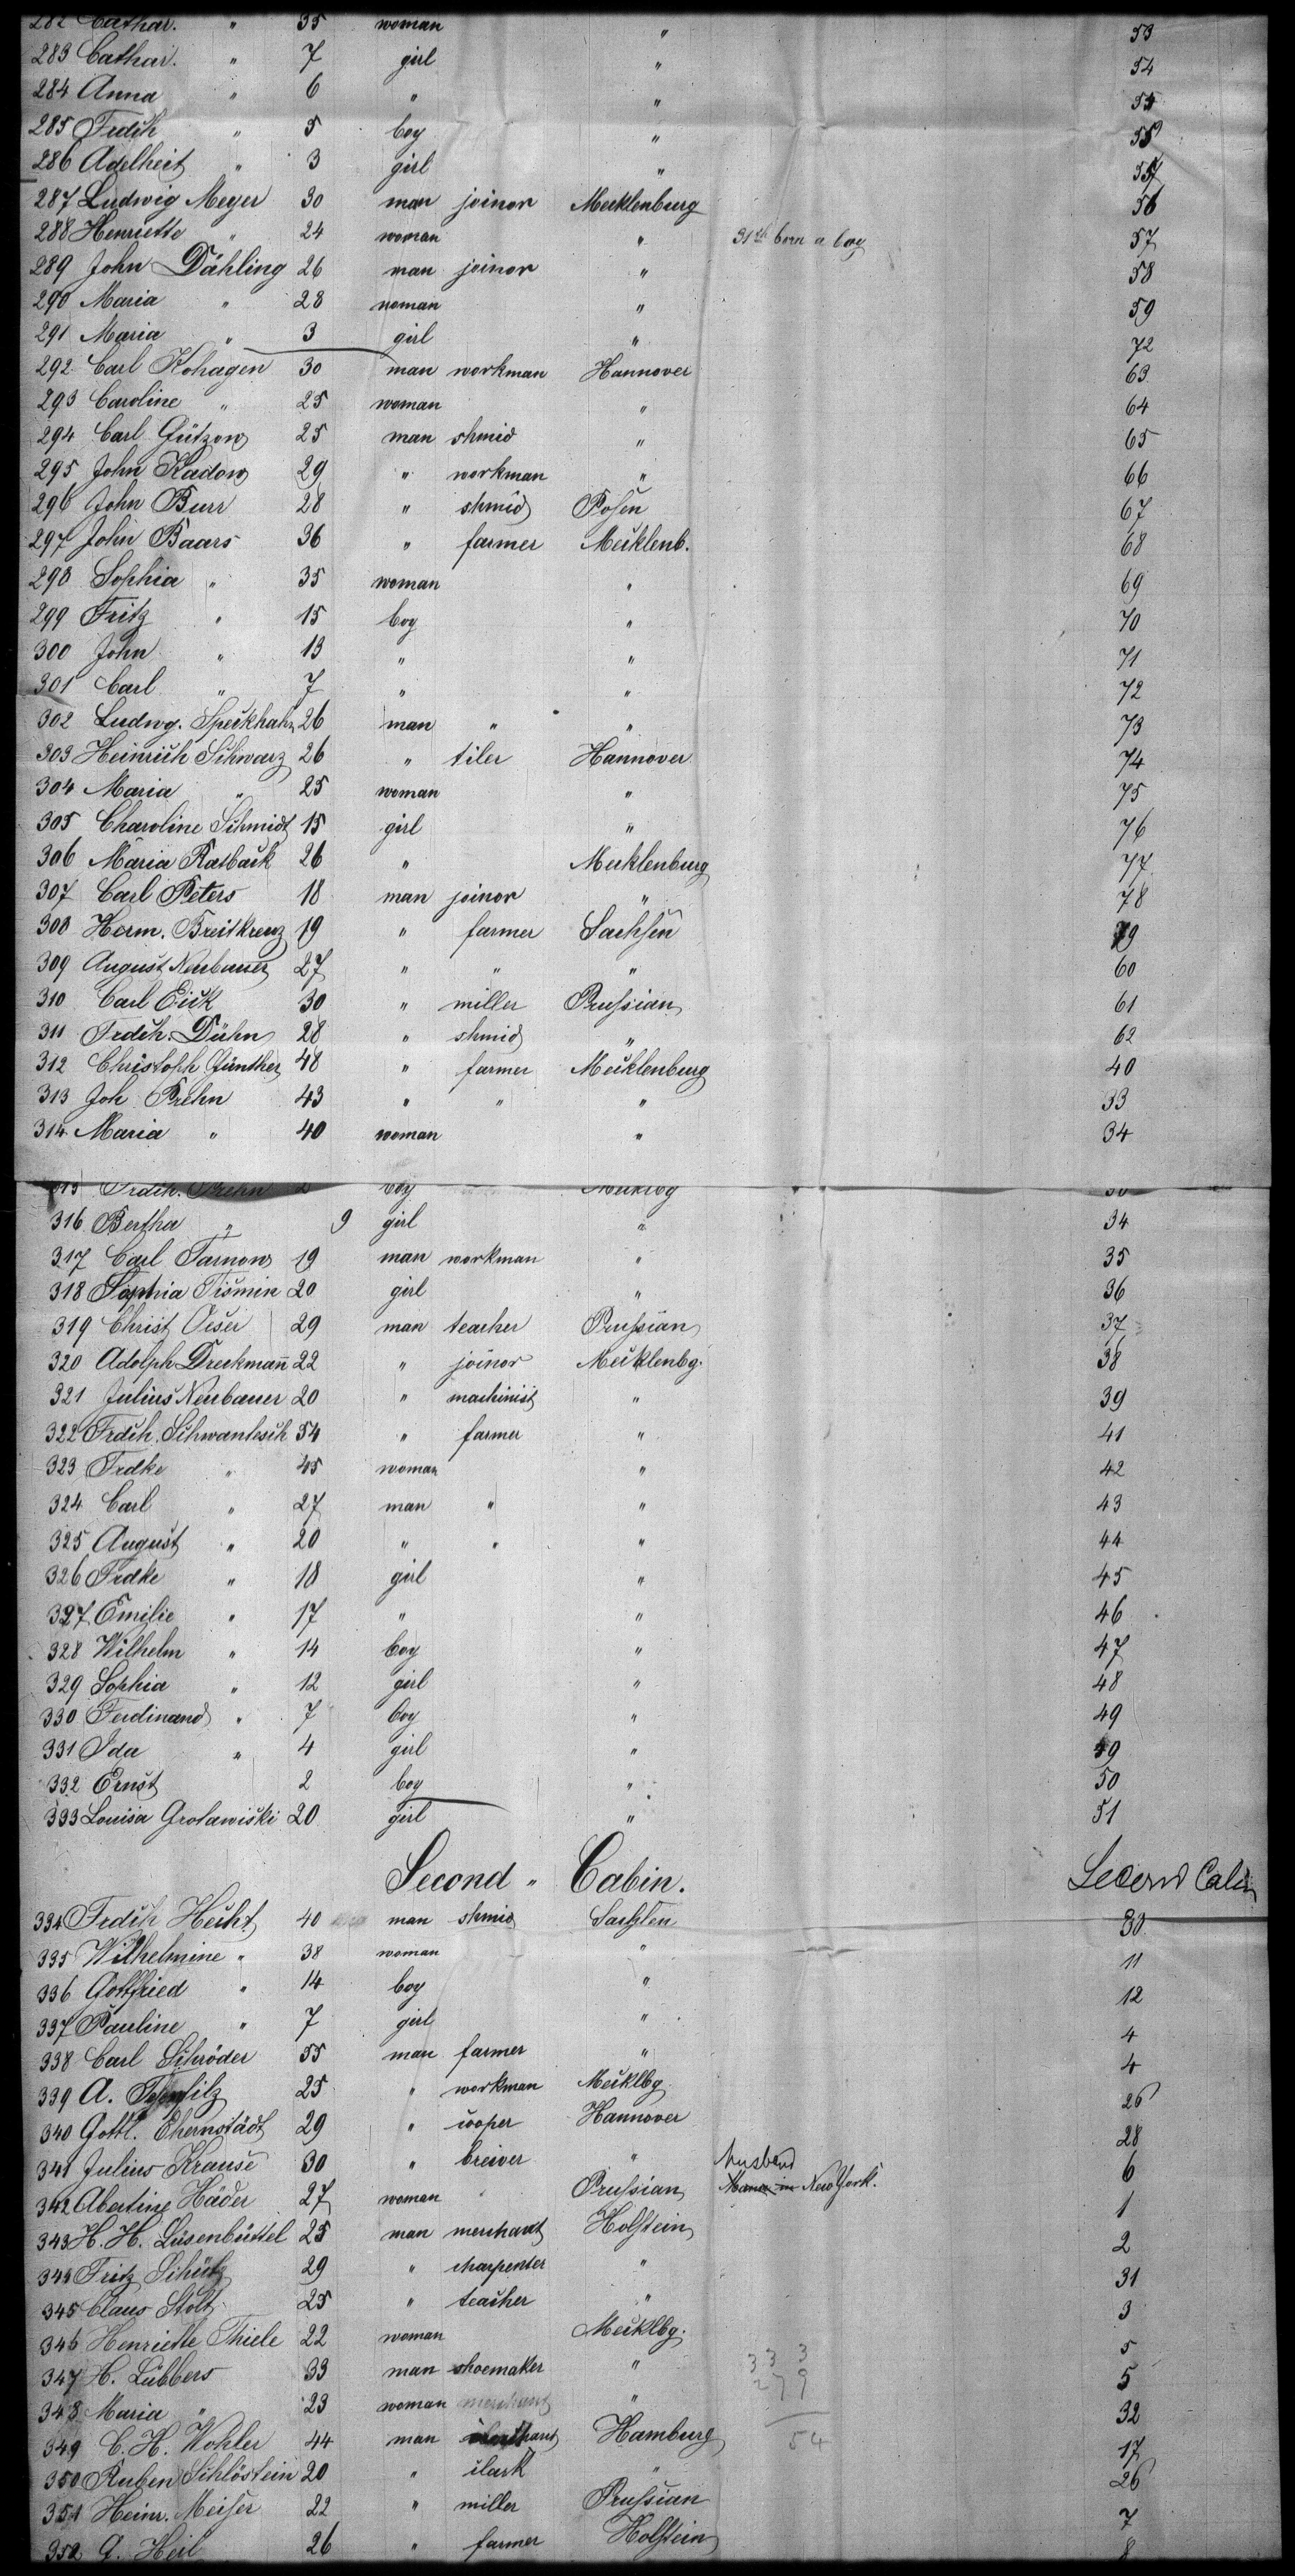 282 Cathar. " 35 woman " 53
283 Cathar. " 7 girl " 54
284 Anna " 6 " " 54
285 Frdch " 5 boy " 55
286 Adelheit " 3 girl " 55
287 Ludwig Meyer 30 man joinor Mecklenburg 56
288 Henriette " 24 woman " 31th born a boy 57
289 John Dähling 26 man joinor " 58
290 Maria " 28 woman " 59
291 Maria " 3 girl " 72
292 Carl Kohagen 30 man workman Hannover 63
293 Caroline " 25 woman " 64
294 Carl Gützow 25 man shmid " 65
295 John Kadow 29 " workman " 66
296 John Burr 28 " shmid Posen 67
297 John Baars 36 " farmer Mecklenb. 68
298 Sophia " 35 woman " 69
299 Fritz " 15 boy " 70
300 John " 13 " " 71
301 Carl " 7 " " 72
302 Ludwg. Speckhahn 26 man " " 73
303 Heinrich Schwarz 26 " tiler Hannover 74
304 Maria " 25 woman " 75
305 Charoline Schmidt 15 girl " 76
306 Maria Rasback 26 " Mecklenburg 77
307 Carl Peters 18 man joinor " 78
308 Herm. Breitkreuz 19 " farmer Sachsen 79
309 August Neubauer 27 " " " 60
310 Carl Eick 30 " miller Prussian 61
311 Frdch. Dühn 28 " shmid " 62
312 Christoph Günther 48 " farmer Mecklenburg 40
313 Joh Prehn 43 " " " 33
314 Maria " 40 woman " 34
315 Frdch. Prehn 2 boy Mecklbg
316 Bertha " 9 girl " 34
317 Carl Tarnow 19 man workman " 35
318 Sophia Tismin 20 girl " 36
319 Christ Oeser 29 man teacher Prussian 37
320 Adolph Dreckmann 22 " joinor Mecklenbg. 38
321 Julius Neubauer 20 " machinist " 39
322 Frdch. Schwantesch 54 " farmer " 41
323 Frdke " 45 woman " 42
324 Carl " 27 man " " 43
325 August " 20 " " " 44
326 Frdke " 18 girl " 45
327 Emilie " 17 " " 46
328 Wilhelm " 14 boy " 47
329 Sophia " 12 girl " 48
330 Ferdinand " 7 boy " 49
331 Ida " 4 girl " 49
332 Ernst 2 boy " 50
333 Louisa Grotawiski 20 girl " 51
Second " Cabin. Second Cabin
334 Frdch Hecht 40 man shmid Sachsen 30
335 Wilhelmine " 38 woman " 11
336 Gottfried " 14 boy " 12
337 Pauline " 7 girl " 4
338 Carl Schröder 55 man farmer " 4
339 A. 25 " workman Mecklbg. 26
340 Gottl. Ehernstädt 29 " cooper Hannover 28
341 Julius Krause 30 " breiver " 6
342 Abertine Häder 27 woman " Prussian husband New York. 1
343 H. H. Lüsenbüttel 25 man merchant Holstein 2
344 Fritz Schütz 29 " charpenter " 31
345 Claus Stolt 25 " teacher " 3
346 Henriette Thiele 22 woman Mecklbg. 5
347 H. Lübbers 33 man shoemaker " 333 5
348 Maria " 23 woman merchant " 279 32
349 C. H. Wohler 44 man Hamburg 54 17
350 Ruben Schlöstein 20 " clark " 26
351 Heinr. Meiser 22 " miller Prussian 7
352 G. Heil 26 " farmer Holstein 8